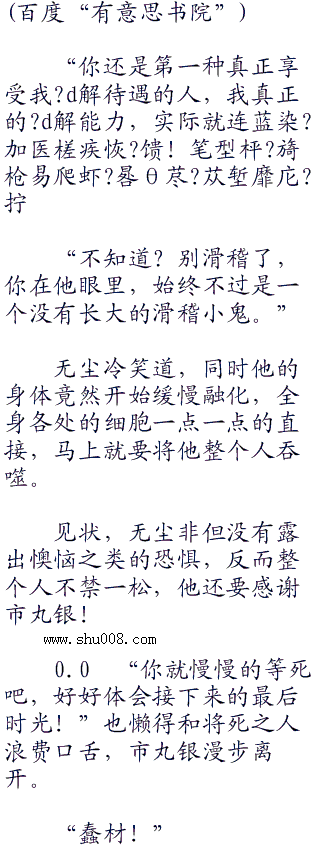 (百度“有意思书院”)
“你还是第一种真正享
受我?d解待遇的人，我真正
的?d解能力，实际就连蓝染?
加医槎疾恢?馈！笔型枰?旖
枪易爬虾?晷θ荩?苁堑靡庀?
拧
“不知道？别滑稽了，
你在他眼里，始终不过是一
个没有长大的滑稽小鬼。”
无尘冷笑道，同时他的
身体竟然开始缓慢融化，全
身各处的细胞一点一点的直
接，马上就要将他整个人吞
噬。
见状，无尘非但没有露
出懊恼之类的恐惧，反而整
个人不禁一松，他还要感谢
市丸银！
www.shu008.com
0.0 “你就慢慢的等死
吧，好好体会接下来的最后
时光！”也懒得和将死之人
浪费口舌，市丸银漫步离
开。
“蠢材！”